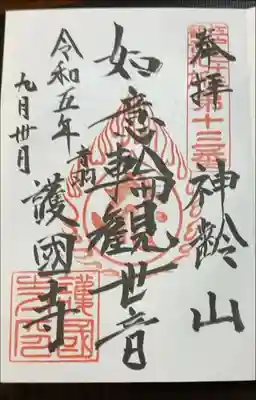 奉拝
神齢山
如意輪観世音
音羽
護國寺
令和五年
九月卅日